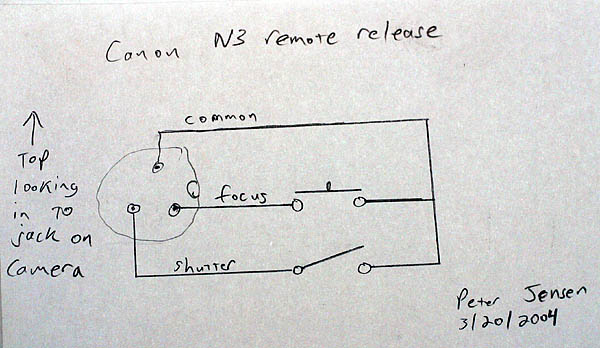 Canon N3 remote release
common
Top
looking
in To
jack on
camera
focus
shutter
Peter Jensen
3/20/2004